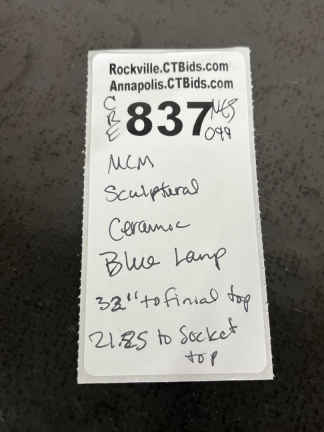 Rockville.CTBids.com
Annapolis.CTBids.com
CRE 837 099
MCM
Sculptural
Ceramic
Blue Lamp
32" to finial top
21.25 to Socket
top